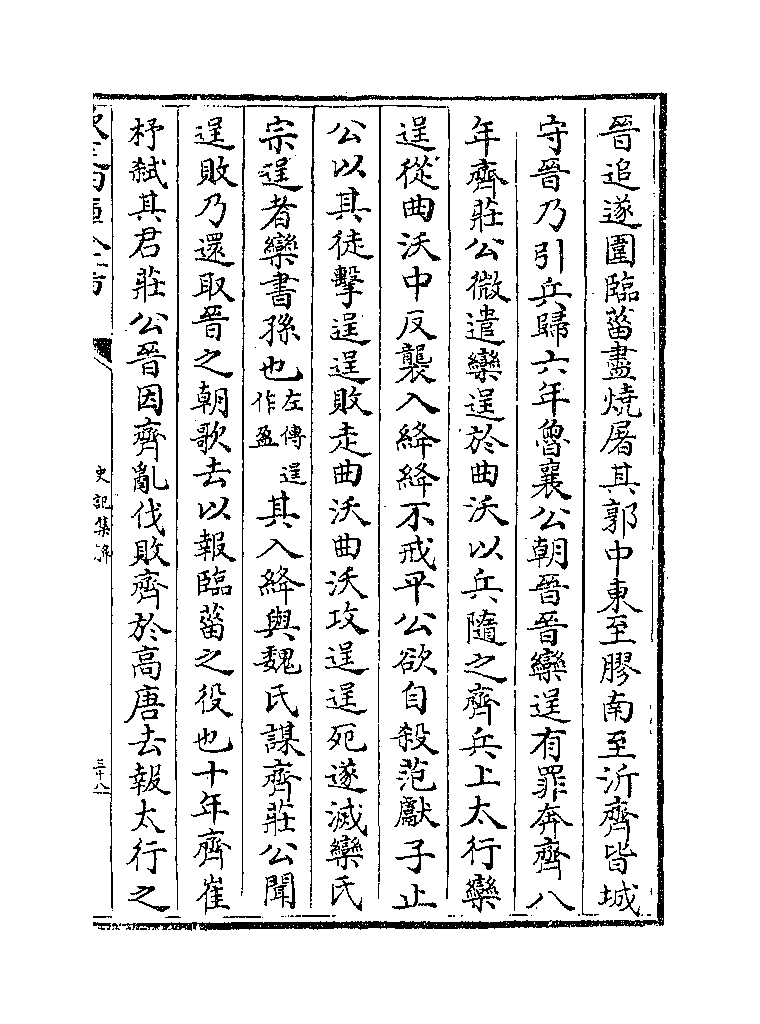 晉追遂圍臨菑盡燒屠其郭中東至膠南至沂齊皆城
守晉乃引兵歸六年魯襄公朝晉晉欒逞有罪奔齊八
年齊莊公微遣欒逞於曲沃以兵隨之齊兵上太行欒
逞從曲沃中反襲入絳絳不戒平公欲自殺范獻子止
公以其徒擊逞逞敗走曲沃曲沃攻逞逞死遂滅欒氏
宗逞者欒書孫也左傳逞作盈其入絳與魏氏謀齊莊公聞
逞敗乃還取晉之朝歌去以報臨菑之役也十年齊崔
杼弑其君莊公晉因齊亂伐敗齊於高唐去報太行之
史記集解
三十八